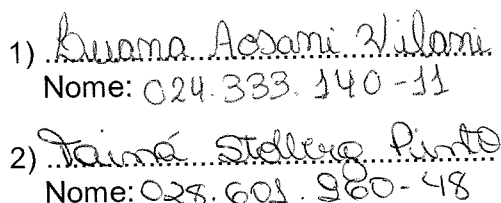 1) Luana Aosani Vilani
Nome: 024.333.140-11
2) Tainá Stolberg Pinto
Nome: 028.601.960-48